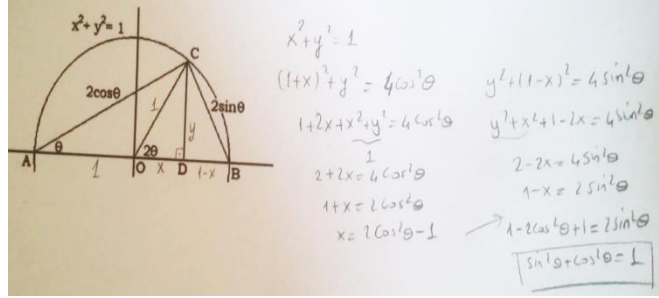 x²+ y²= 1
C
2cosθ
1
2sinθ
y
θ
2θ
A
1
O
x
D
1-x
B
x²+y²=1
(1+x)²+y²=4cos²θ
1+2x+x²+y²=4cos²θ
1
2+2x=4cos²θ
1+x=2cos²θ
x=2cos²θ-1
y²+(1-x)²=4sin²θ
y²+x²+1-2x=4sin²θ
2-2x=4sin²θ
1-x=2sin²θ
1-2cos²θ+1=2sin²θ
sin²θ+cos²θ=1